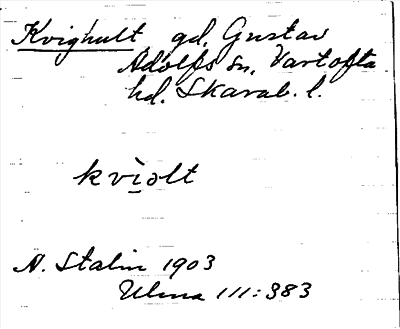 Kvighult gd, Gustav
Adolfs sn, Vartofta
hd. Skarab. l.
kvì̱əlt
A. Stalin 1903
Ulma 111:383